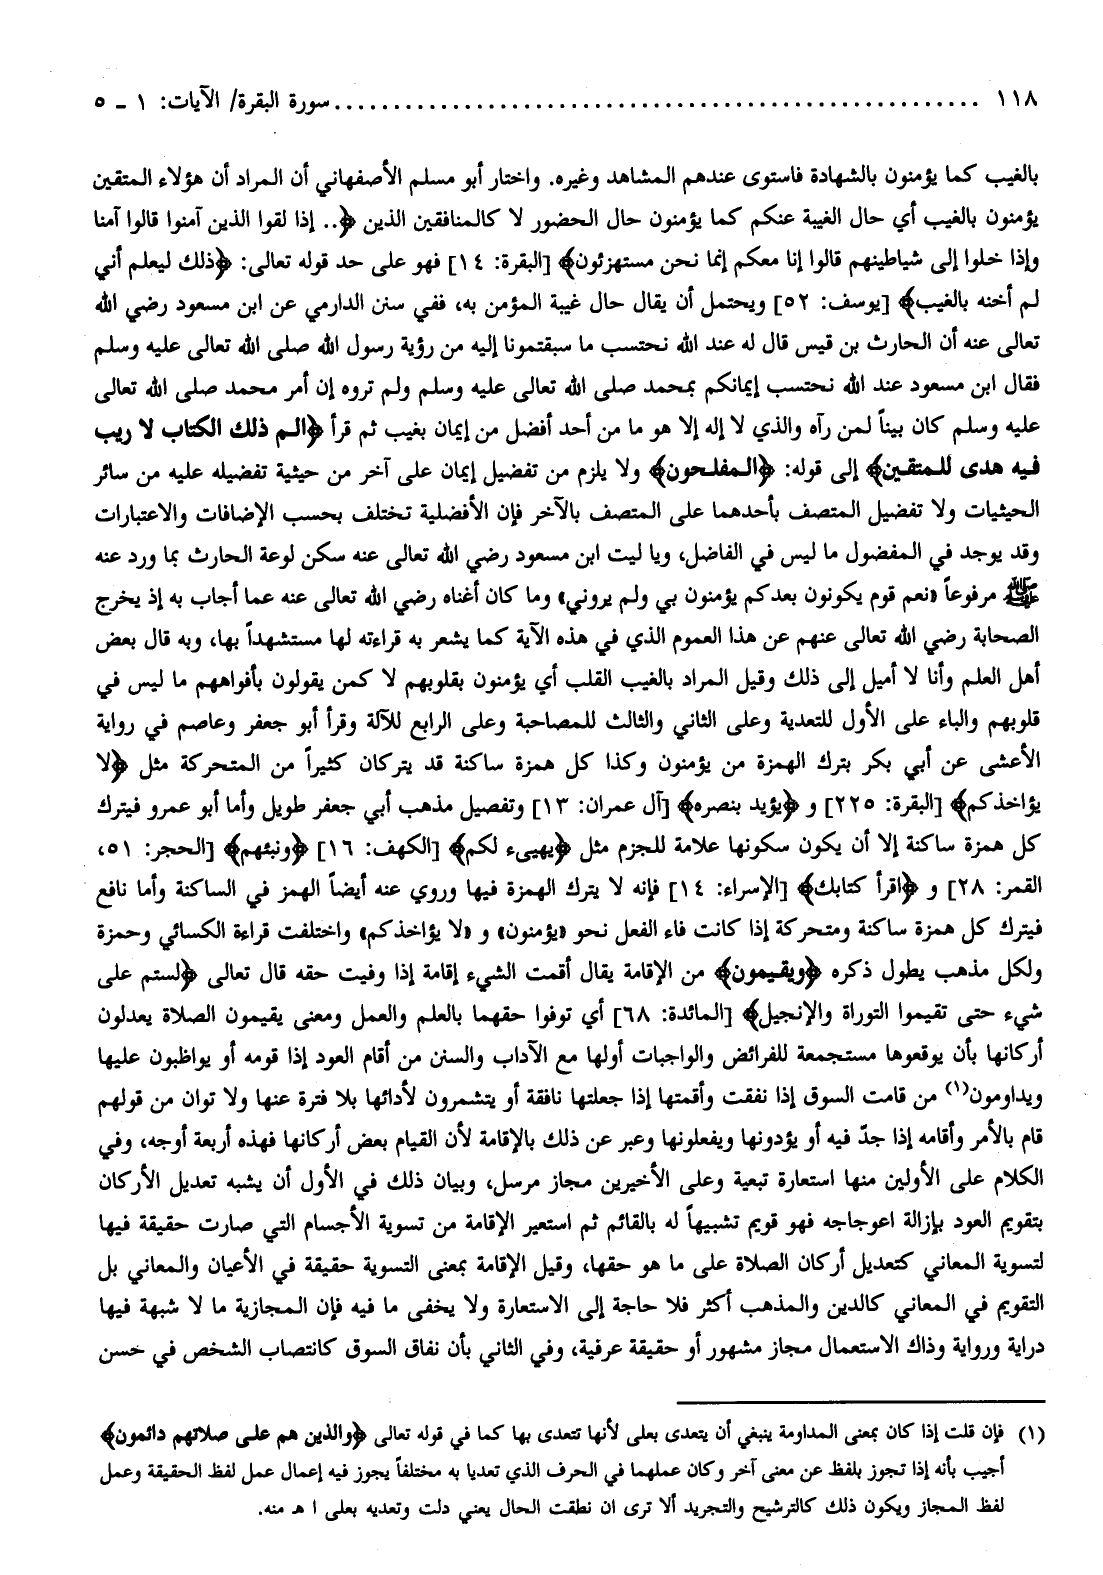 ١١٨ ............................................................ سورة البقرة/ الآيات: ١ ـ ٥
بالغيب كما يؤمنون بالشهادة فاستوى عندهم المشاهد وغيره. واختار أبو مسلم الأصفهاني أن المراد أن هؤلاء المتقين
يؤمنون بالغيب أي حال الغيبة عنكم كما يؤمنون حال الحضور لا كالمنافقين الذين ﴿.. إذا لقوا الذين آمنوا قالوا آمنا
وإذا خلوا إلى شياطينهم قالوا إنا معكم إنما نحن مستهزئون﴾ [البقرة: ١٤] فهو على حد قوله تعالى: ﴿ذلك ليعلم أني
لم أخنه بالغيب﴾ [يوسف: ٥٢] ويحتمل أن يقال حال غيبة المؤمن به، ففي سنن الدارمي عن ابن مسعود رضي الله
تعالى عنه أن الحارث بن قيس قال له عند الله نحتسب ما سبقتمونا إليه من رؤية رسول الله صلى الله تعالى عليه وسلم
فقال ابن مسعود عند الله نحتسب إيمانكم بمحمد صلى الله تعالى عليه وسلم ولم تروه إن أمر محمد صلى الله تعالى
عليه وسلم كان بيناً لمن رآه والذي لا إله إلا هو ما من أحد أفضل من إيمان بغيب ثم قرأ ﴿الـم ذلك الكتاب لا ريب
فيه هدى للمتقين﴾ إلى قوله: ﴿المفلحون﴾ ولا يلزم من تفضيل إيمان على آخر من حيثية تفضيله عليه من سائر
الحيثيات ولا تفضيل المتصف بأحدهما على المتصف بالآخر فإن الأفضلية تختلف بحسب الإضافات والاعتبارات
وقد يوجد في المفضول ما ليس في الفاضل، ويا ليت ابن مسعود رضي الله تعالى عنه سكن لوعة الحارث بما ورد عنه
ﷺ مرفوعاً «نعم قوم يكونون بعدكم يؤمنون بي ولم يروني» وما كان أغناه رضي الله تعالى عنه عما أجاب به إذ يخرج
الصحابة رضي الله تعالى عنهم عن هذا العموم الذي في هذه الآية كما يشعر به قراءته لها مستشهداً بها، وبه قال بعض
أهل العلم وأنا لا أميل إلى ذلك وقيل المراد بالغيب القلب أي يؤمنون بقلوبهم لا كمن يقولون بأفواههم ما ليس في
قلوبهم والباء على الأول للتعدية وعلى الثاني والثالث للمصاحبة وعلى الرابع للآلة وقرأ أبو جعفر وعاصم في رواية
الأعشى عن أبي بكر بترك الهمزة من يؤمنون وكذا كل همزة ساكنة قد يتركان كثيراً من المتحركة مثل ﴿لا
يؤاخذكم﴾ [البقرة: ٢٢٥] و ﴿يؤيد بنصره﴾ [آل عمران: ١٣] وتفصيل مذهب أبي جعفر طويل وأما أبو عمرو فيترك
كل همزة ساكنة إلا أن يكون سكونها علامة للجزم مثل ﴿يهيىء لكم﴾ [الكهف: ١٦] ﴿ونبئهم﴾ [الحجر: ٥١،
القمر: ٢٨] و ﴿اقرأ كتابك﴾ [الإسراء: ١٤] فإنه لا يترك الهمزة فيها وروي عنه أيضاً الهمز في الساكنة وأما نافع
فيترك كل همزة ساكنة ومتحركة إذا كانت فاء الفعل نحو «يؤمنون» و «لا يؤاخذكم» واختلفت قراءة الكسائي وحمزة
ولكل مذهب يطول ذكره ﴿ويقيمون﴾ من الإقامة يقال أقمت الشيء إقامة إذا وفيت حقه قال تعالى ﴿لستم على
شيء حتى تقيموا التوراة والإنجيل﴾ [المائدة: ٦٨] أي توفوا حقهما بالعلم والعمل ومعنى يقيمون الصلاة يعدلون
أركانها بأن يوقعوها مستجمعة للفرائض والواجبات أولها مع الآداب والسنن من أقام العود إذا قومه أو يواظبون عليها
ويداومون(١) من قامت السوق إذا نفقت وأقمتها إذا جعلتها نافقة أو يتشمرون لأدائها بلا فترة عنها ولا توان من قولهم
قام بالأمر وأقامه إذا جدّ فيه أو يؤدونها ويفعلونها وعبر عن ذلك بالإقامة لأن القيام بعض أركانها فهذه أربعة أوجه، وفي
الكلام على الأولين منها استعارة تبعية وعلى الأخيرين مجاز مرسل، وبيان ذلك في الأول أن يشبه تعديل الأركان
بتقويم العود بإزالة اعوجاجه فهو قويم تشبيهاً له بالقائم ثم استعير الإقامة من تسوية الأجسام التي صارت حقيقة فيها
لتسوية المعاني كتعديل أركان الصلاة على ما هو حقها، وقيل الإقامة بمعنى التسوية حقيقة في الأعيان والمعاني بل
التقويم في المعاني كالدين والمذهب أكثر فلا حاجة إلى الاستعارة ولا يخفى ما فيه فإن المجازية ما لا شبهة فيها
دراية ورواية وذاك الاستعمال مجاز مشهور أو حقيقة عرفية، وفي الثاني بأن نفاق السوق كانتصاب الشخص في حسن
(١) فإن قلت إذا كان بمعنى المداومة ينبغي أن يتعدى بعلى لأنها تتعدى بها كما في قوله تعالى ﴿والذين هم على صلاتهم دائمون﴾
أجيب بأنه إذا تجوز بلفظ عن معنى آخر وكان عملهما في الحرف الذي تعديا به مختلفاً يجوز فيه إعمال عمل لفظ الحقيقة وعمل
لفظ المجاز ويكون ذلك كالترشيح والتجريد ألا ترى ان نطقت الحال يعني دلت وتعديه بعلى ا هـ منه.